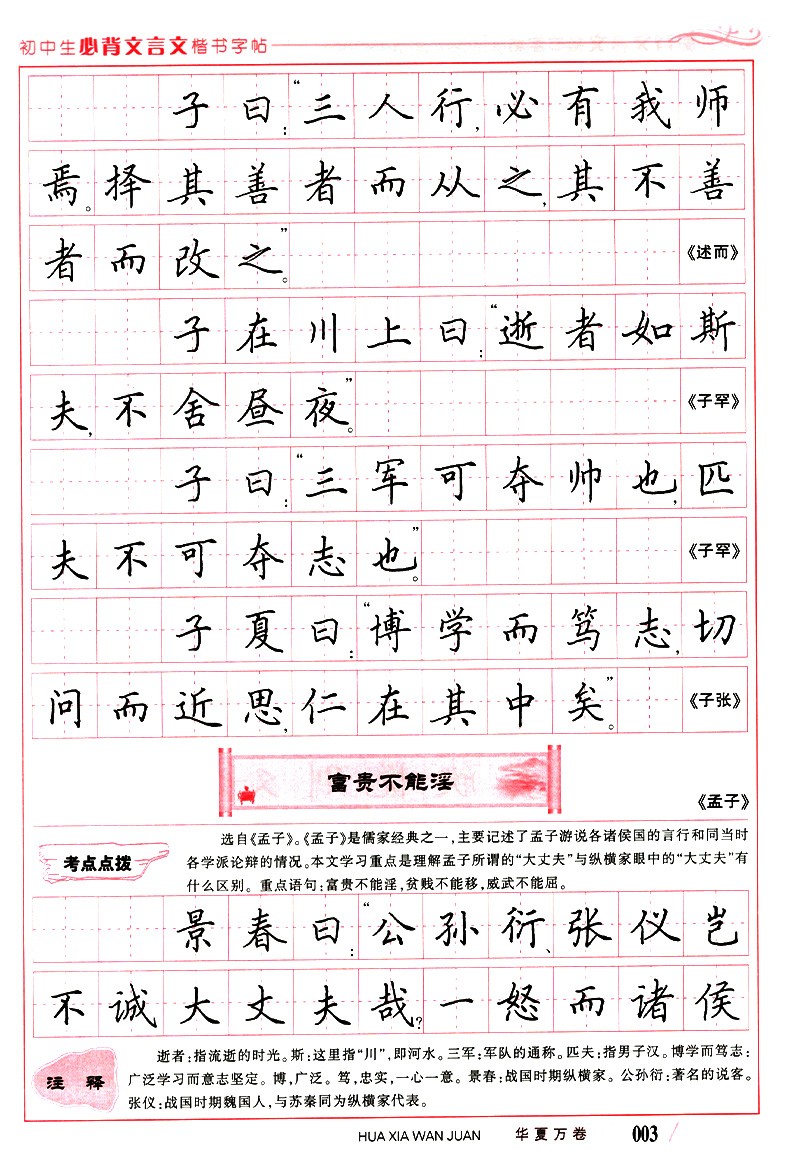 初中生必背文言文楷书字帖
子曰：“三人行，必有我师
焉。择其善者而从之，其不善
者而改之。”《述而》
子在川上曰：“逝者如斯
夫，不舍昼夜。”《子罕》
子曰：“三军可夺帅也，匹
夫不可夺志也。”《子罕》
子夏曰：“博学而笃志，切
问而近思，仁在其中矣。”《子张》
富贵不能淫
《孟子》
考点点拨
选自《孟子》。《孟子》是儒家经典之一，主要记述了孟子游说各诸侯国的言行和同当时
各学派论辩的情况。本文学习重点是理解孟子所谓的“大丈夫”与纵横家眼中的“大丈夫”有
什么区别。重点语句：富贵不能淫，贫贱不能移，威武不能屈。
景春曰：“公孙衍、张仪岂
不诚大丈夫哉？一怒而诸侯
注释
逝者：指流逝的时光。斯：这里指“川”，即河水。三军：军队的通称。匹夫：指男子汉。博学而笃志：
广泛学习而意志坚定。博，广泛。笃，忠实，一心一意。景春：战国时期纵横家。公孙衍：著名的说客。
张仪：战国时期魏国人，与苏秦同为纵横家代表。
HUA XIA WAN JUAN 华夏万卷 003